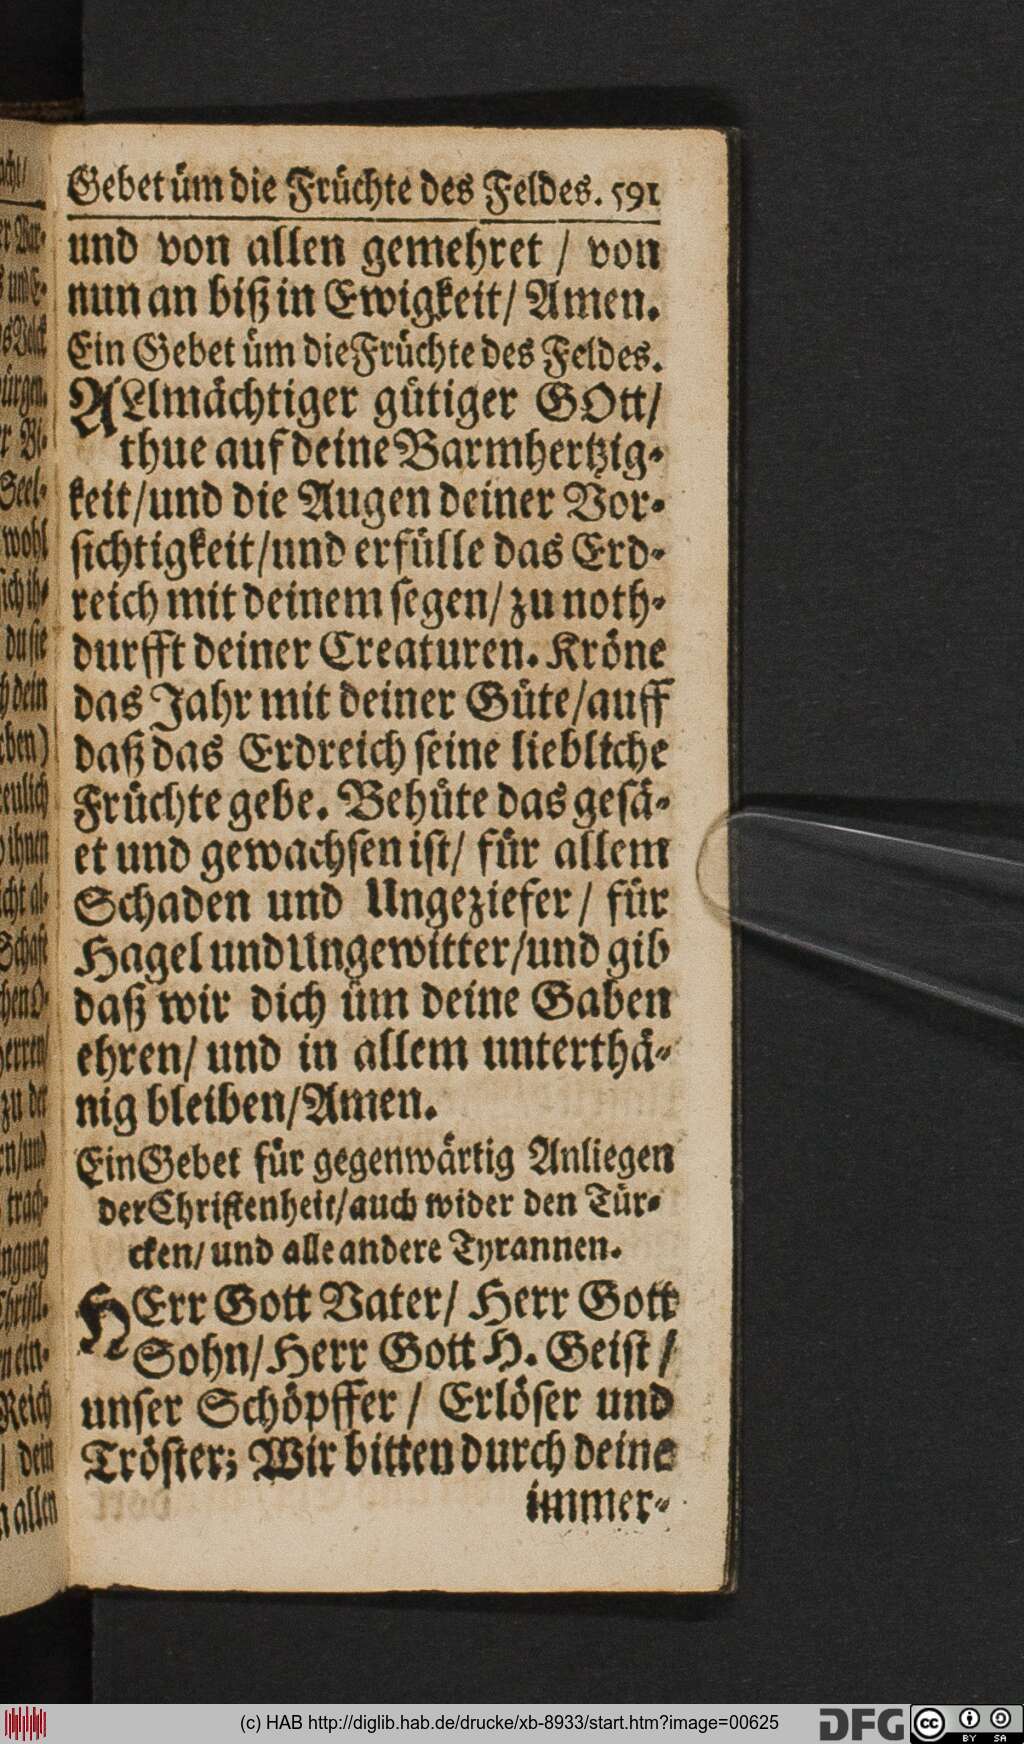 Gebet üm die Früchte des Feldes. 591
und von allen gemehret / von
nun an biß in Ewigkeit / Amen.
Ein Gebet üm die Früchte des Feldes.
ALlmächtiger gütiger GOtt /
thue auf deine Barmhertzig-
keit / und die Augen deiner Vor-
sichtigkeit / und erfülle das Erd-
reich mit deinem segen / zu noth-
durfft deiner Creaturen. Kröne
das Jahr mit deiner Güte / auff
daß das Erdreich seine liebliche
Früchte gebe. Behüte das gesä-
et und gewachsen ist / für allem
Schaden und Ungeziefer / für
Hagel und Ungewitter / und gib
daß wir dich üm deine Gaben
ehren / und in allem unterthä-
nig bleiben / Amen.
Ein Gebet für gegenwärtig Anliegen
der Christenheit / auch wider den Tür-
cken / und alle andere Tyrannen.
HErr Gott Vater / Herr Gott
Sohn / Herr Gott H. Geist /
unser Schöpffer / Erlöser und
Tröster; Wir bitten durch deine
immer-
(c) HAB http://diglib.hab.de/drucke/xb-8933/start.htm?image=00625
DFG
cc BY SA